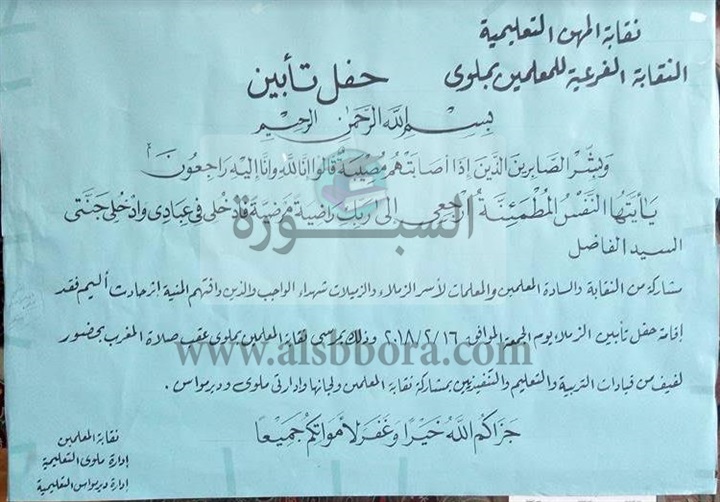 نقابة المهن التعليمية
النقابة الفرعية للمعلمين بملوى
حفل تأبين
بسم الله الرحمن الرحيم
وبشر الصابرين الذين إذا أصابتهم مصيبة قالوا انا لله وانا إليه راجعون
يأيتها النفس المطمئنة ارجعى إلى ربك راضية مرضية فادخلى فى عبادى وادخلى جنتى
السبورة
السيد الفاضل
مشاركة من النقابة والسادة المعلمين والمعلمات لأسر الزملاء والزميلات شهداء الواجب والذين وافتهم المنية إثر حادث أليم فقد
إقامة حفل تأبين الزملاء يوم الجمعة الموافق ٢٠١٨/٢/١٦ وذلك بمرسى نقابة المعلمين بملوى عقب صلاة المغرب بحضور
www.alsbbora.com
لفيف من قيادات التربية والتعليم والتنفيذيين بمشاركة نقابة المعلمين ولجانها وإدارتى ملوى وديرمواس .
جزاكم الله خيرا وغفر لأمواتكم جميعا
نقابة المعلمين
إدارة ملوى التعليمية
إدارة ديرمواس التعليمية